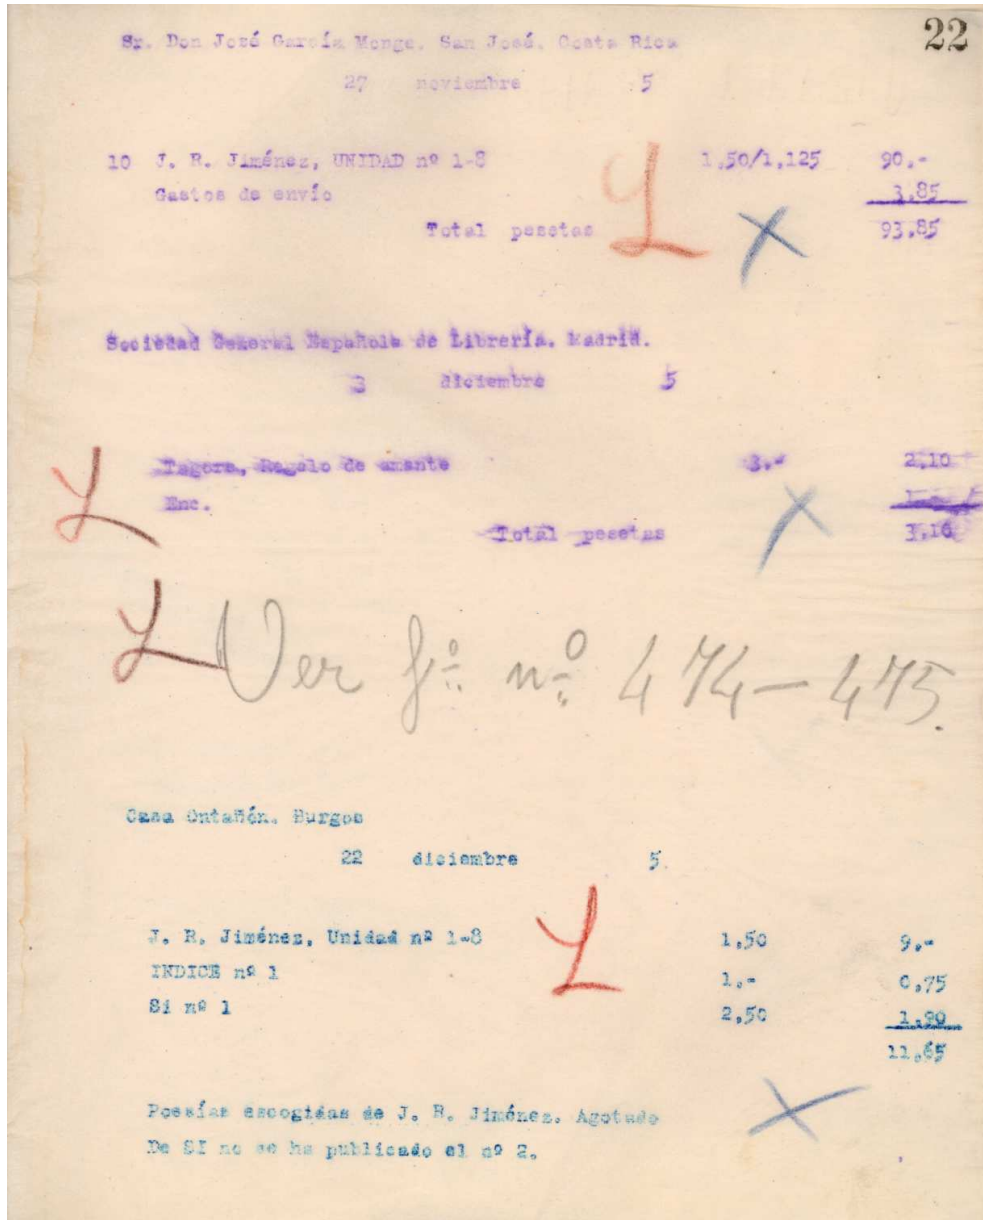 22
Sr. Don José García Monge. San José. Costa Rica
27 noviembre 5
10 J. R. Jiménez, UNIDAD nº 1-8 1,50/1,125 90.-
Gastos de envío 3,85
Total pesetas 93,85
Sociedad General Española de Librería. Madrid.
3 diciembre 5
Tagore, Regalo de amante 3.- 2,10
Enc.
Total pesetas 3,10
Ver fº nº 474-475.
Casa Ontañón. Burgos
22 diciembre 5.
J. R. Jiménez, Unidad nº 1-8 1,50 9.-
INDICE nº 1 1.- 0,75
Si nº 1 2,50 1,90
11,65
Poesías escogidas de J. R. Jiménez. Agotado
De SI no se ha publicado el nº 2.